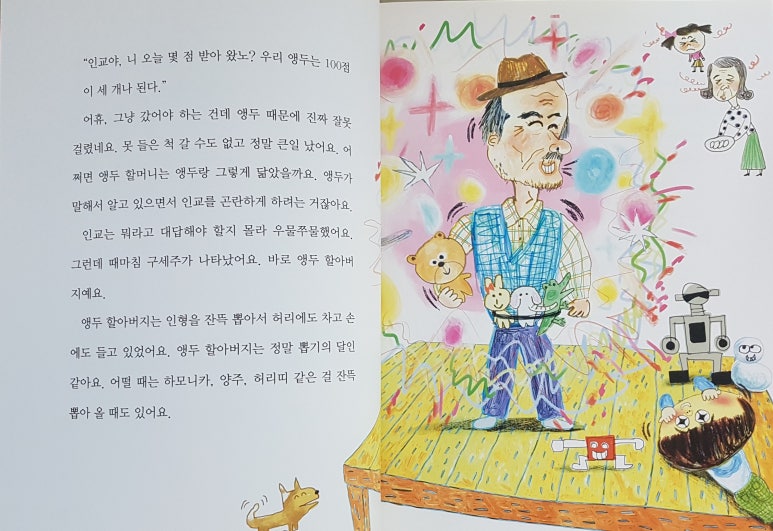 “인교야, 니 오늘 몇 점 받아 왔노? 우리 앵두는 100점
이 세 개나 된다.”
어휴, 그냥 갔어야 하는 건데 앵두 때문에 진짜 잘못
걸렸네요. 못 들은 척 갈 수도 없고 정말 큰일 났어요. 어
쩌면 앵두 할머니는 앵두랑 그렇게 닮았을까요. 앵두가
말해서 알고 있으면서 인교를 곤란하게 하려는 거잖아요.
인교는 뭐라고 대답해야 할지 몰라 우물쭈물했어요.
그런데 때마침 구세주가 나타났어요. 바로 앵두 할아버
지예요.
앵두 할아버지는 인형을 잔뜩 뽑아서 허리에도 차고 손
에도 들고 있었어요. 앵두 할아버지는 정말 뽑기의 달인
같아요. 어떨 때는 하모니카, 양주, 허리띠 같은 걸 잔뜩
뽑아 올 때도 있어요.